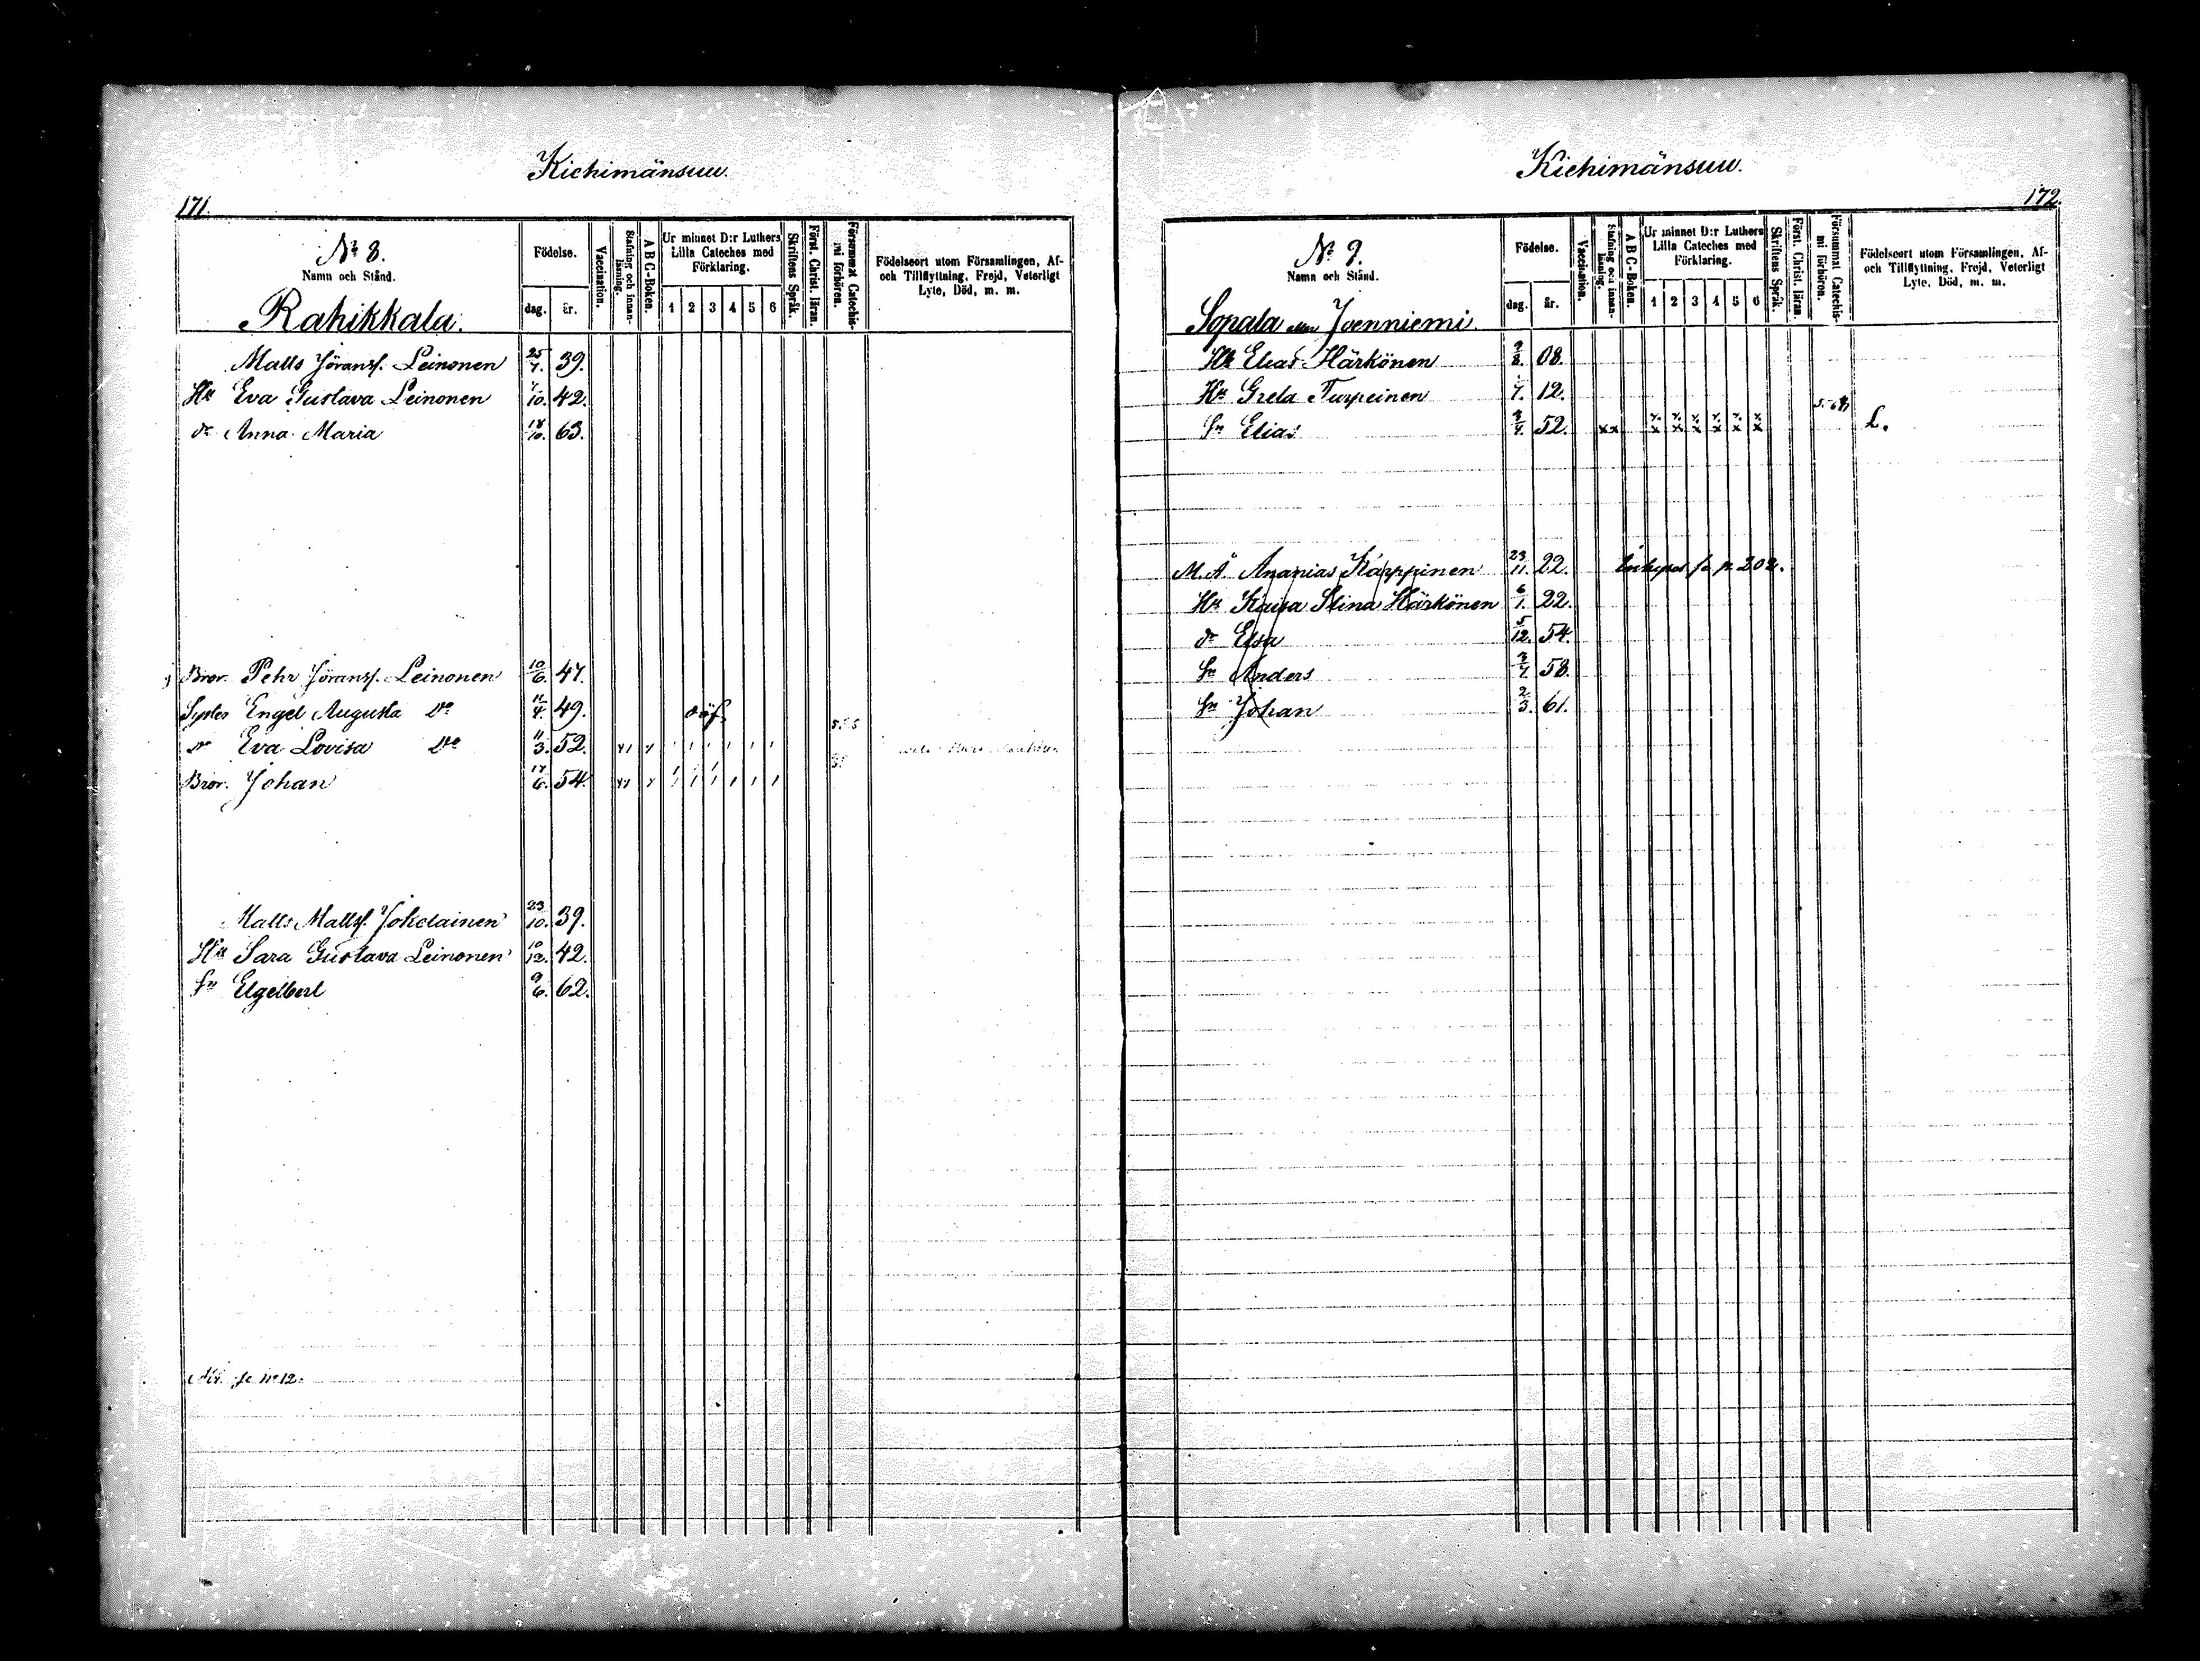 Kiehimänsuu.
171.
No 8.
Namn och Stånd.
Rahikkala.
Födelse.
dag. år.
Vaccination.
Stafning och innan-läsning.
A B C-Boken.
Ur minnet D:r Luthers
Lilla Cateches med
Förklaring.
1 2 3 4 5 6
Skriftens Språk.
Först. Christ. läran.
Försummat Catechis-
mi förhören.
Födelseort utom Församlingen, Af-
och Tillflyttning, Frejd, Veterligt
Lyte, Död, m. m.
Matts Jöranss. Leinonen 25/7. 39.
Hu Eva Gustava Leinonen 7/10. 42.
dr Anna Maria 63.
Bror. Pehr Jöranss. Leinonen 10/6. 47.
Syster Engel Augusta Do 11/4. 49.
Do Eva Lovisa Do 11/3. 52.
Bror. Johan 54.
Matts Mattss. Jokelainen 23/10. 39.
Hu Sara Gustava Leinonen 10/12. 42.
Sn Elgelbert 9/6. 62.
se no 12.
Kiehimänsuu.
172.
No 9.
Namn och Stånd.
Sopala eller Joenniemi.
Födelse.
dag. år.
Vaccination.
Stafning och innan-läsning.
A B C-Boken.
Ur minnet D:r Luthers
Lilla Cateches med
Förklaring.
1 2 3 4 5 6
Skriftens Språk.
Först. Christ. läran.
Försummat Catechis-
mi förhören.
Födelseort utom Församlingen, Af-
och Tillflyttning, Frejd, Veterligt
Lyte, Död, m. m.
Elias Härkönen 08.
Hu Greta Turpeinen 12.
Sn Elias 52. L.
M. Å. Ananias Karppinen 23/11. 22. p 202.
Hu Kaisa Stina Härkönen 6/1. 22.
dr Elsa 5/12. 54.
Sn Anders 58.
Sn Johan 2/3. 61.